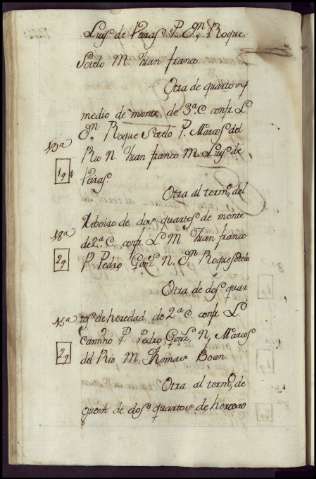 Luis de Peras P. Dn. Roque
Sotelo M. Juan franco
Otra de quarto y
medio de monte de 3ª C. confr. L.
Dn. Roque Sotelo P. Marcos del
Rio N. Juan franco M. Luis de
Peras
Otra al termo. del
de dos quartos de monte
de 2ª C. confr. L. M. Juan franco
P. Pedro Gonz. N. Dn. Roque Sotelo
Otra de dos quar
tos de heredad de 2ª C. confr. L.
Camino P. Pedro Gonz. N. Marcos
del Rio M. Roman
Otra al termo. de
de dos quartos de